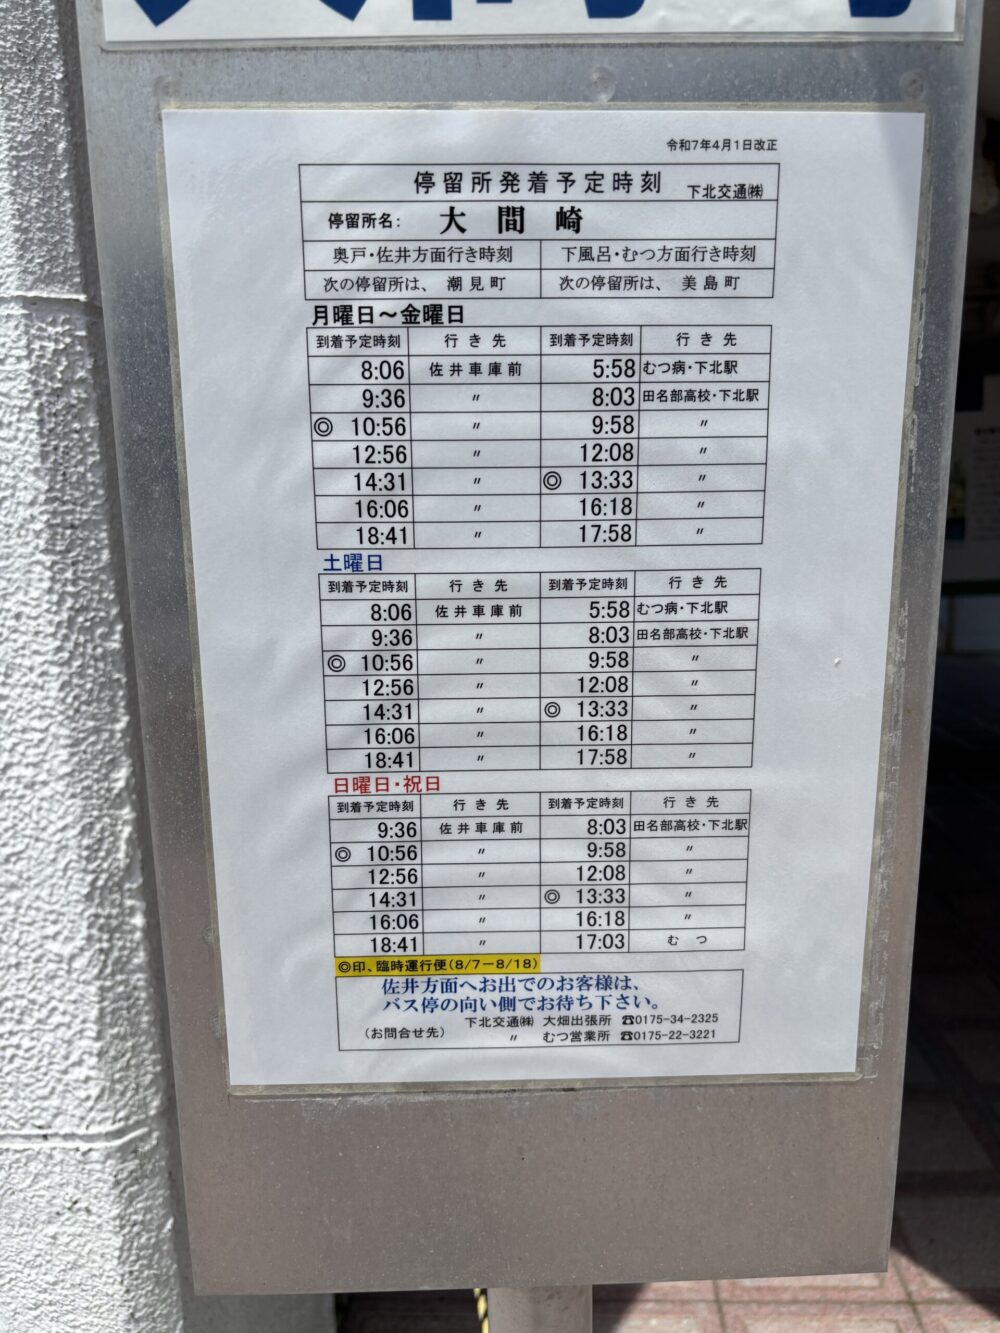 令和7年4月1日改正
停留所発着予定時刻 下北交通㈱
停留所名: 大間崎
奥戸・佐井方面行き時刻 下風呂・むつ方面行き時刻
次の停留所は、 潮見町 次の停留所は、 美島町
月曜日～金曜日
到着予定時刻 行き先 到着予定時刻 行き先
8:06 佐井車庫前 5:58 むつ病・下北駅
9:36 〃 8:03 田名部高校・下北駅
◎ 10:56 〃 9:58 〃
12:56 〃 12:08 〃
14:31 〃 ◎ 13:33 〃
16:06 〃 16:18 〃
18:41 〃 17:58 〃
土曜日
到着予定時刻 行き先 到着予定時刻 行き先
8:06 佐井車庫前 5:58 むつ病・下北駅
9:36 〃 8:03 田名部高校・下北駅
◎ 10:56 〃 9:58 〃
12:56 〃 12:08 〃
14:31 〃 ◎ 13:33 〃
16:06 〃 16:18 〃
18:41 〃 17:58 〃
日曜日・祝日
到着予定時刻 行き先 到着予定時刻 行き先
9:36 佐井車庫前 8:03 田名部高校・下北駅
◎ 10:56 〃 9:58 〃
12:56 〃 12:08 〃
14:31 〃 ◎ 13:33 〃
16:06 〃 16:18 〃
18:41 〃 17:03 むつ
◎印、臨時運行便(8/7－8/18)
佐井方面へお出でのお客様は、
バス停の向い側でお待ち下さい。
(お問合せ先) 下北交通㈱ 大畑出張所 ☎0175-34-2325
〃 むつ営業所 ☎0175-22-3221